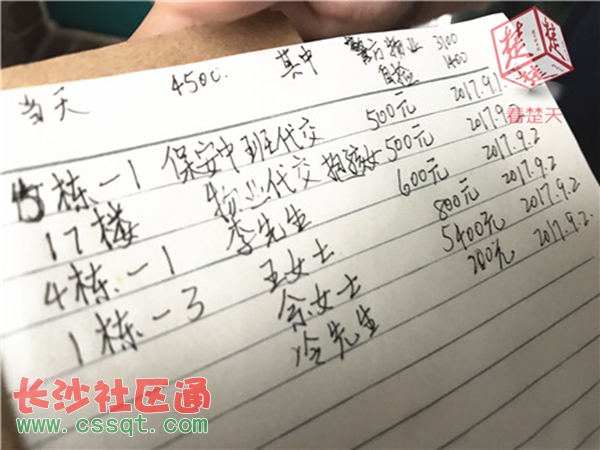 楚楚
看楚天
当天 4500. 其中 警方物业 3100
自捡 1400
15栋一1 保安中班代交 500元 2017.9.1
17楼 物业代交 500元 2017.9.2
4栋一1 李先生 600元 2017.9.2
1栋一3 王女士 800元 2017.9.2
余女士 5400元 2017.9.2
冷先生 200元 2017.9.2
长沙社区通
www.cssqt.com